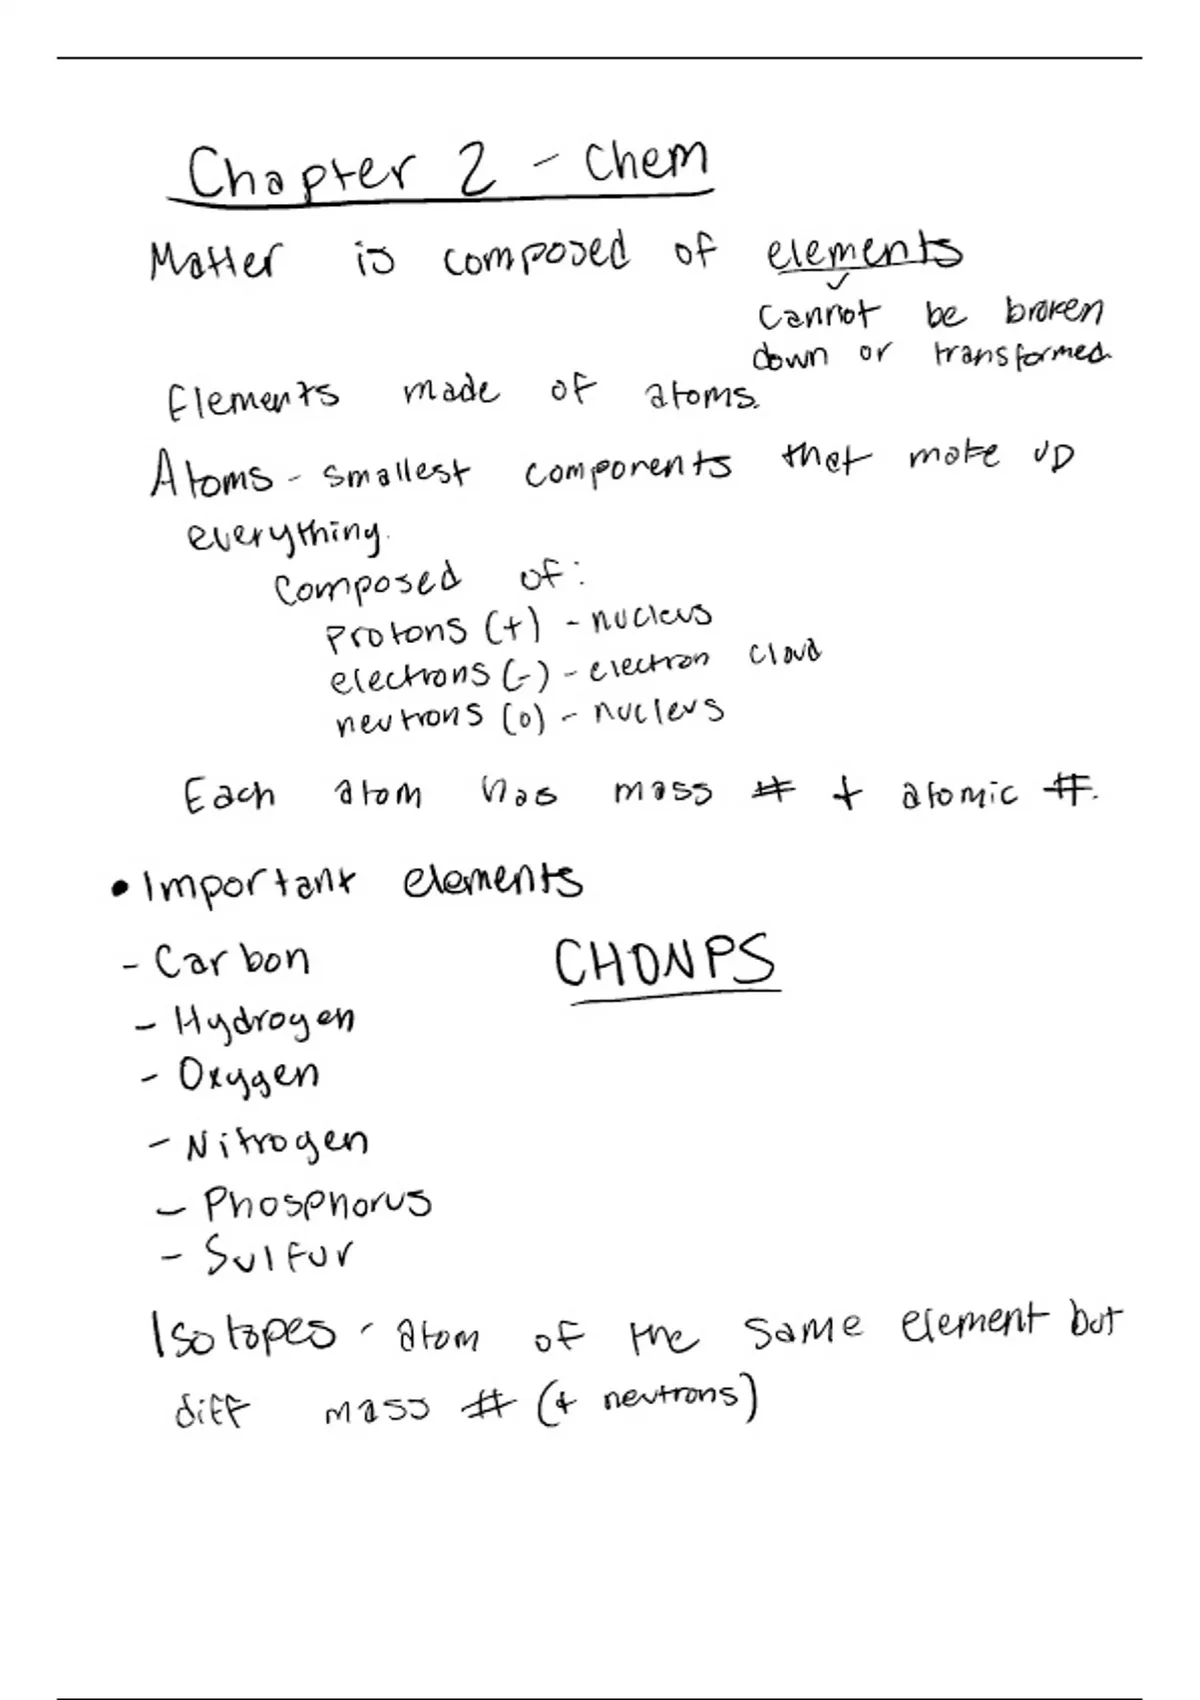 Chapter 2 - Chem
Matter is composed of elements
cannot be broken
down or transformed.
Elements made of atoms.
Atoms - smallest components that make up
everything.
Composed of:
Protons (+) - nucleus
electrons (-) - electron cloud
neutrons (0) - nucleus
Each atom has mass # + atomic #.
• Important elements
- Carbon
CHONPS
- Hydrogen
- Oxygen
- Nitrogen
- Phosphorus
- Sulfur
Isotopes - atom of the same element but
diff mass # (+ neutrons)